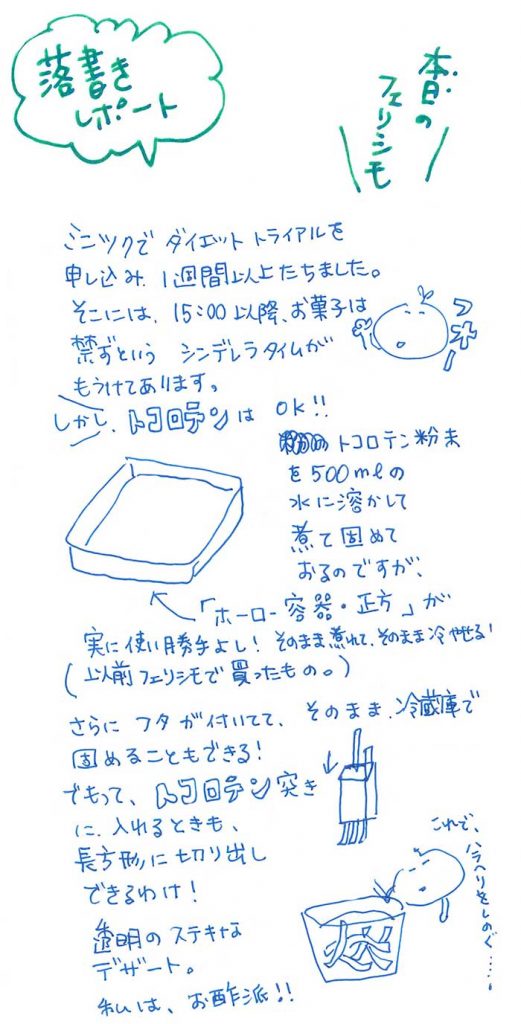 落書き
レポート
本日の
フェリシモ
ミニツクで ダイエット トライアルを
申し込み、1週間以上たちました。
そこには、15:00以降、お菓子は
禁ずという シンデレラタイムが
もうけてあります。
しかし、トコロテンは OK!!
トコロテン粉末
を500mlの
水に溶かして
煮て固めて
おるのですが、
「ホーロー容器・正方」が
実に使い勝手よし! そのまま煮れて、そのまま冷やせる!
(以前フェリシモで買ったもの。)
さらに フタが付いてて、そのまま、冷蔵庫で
固めることもできる!
でもって、トコロテン突き
に、入れるときも、
長方形に切り出し
できるわけ!
これで、
ハラヘリをしのぐ……
透明のステキな
デザート。
私は、お酢派!!